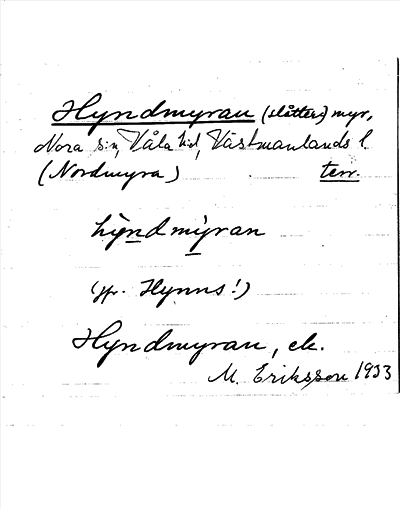 Hyndmyran (slåtter) myr,
Nora sn, Våla hd, Västmanlands l.
(Nordmyra) terr.
hỳndmýran
(jfr. Hynns!)
Hyndmyran, ek.
M. Eriksson 1933